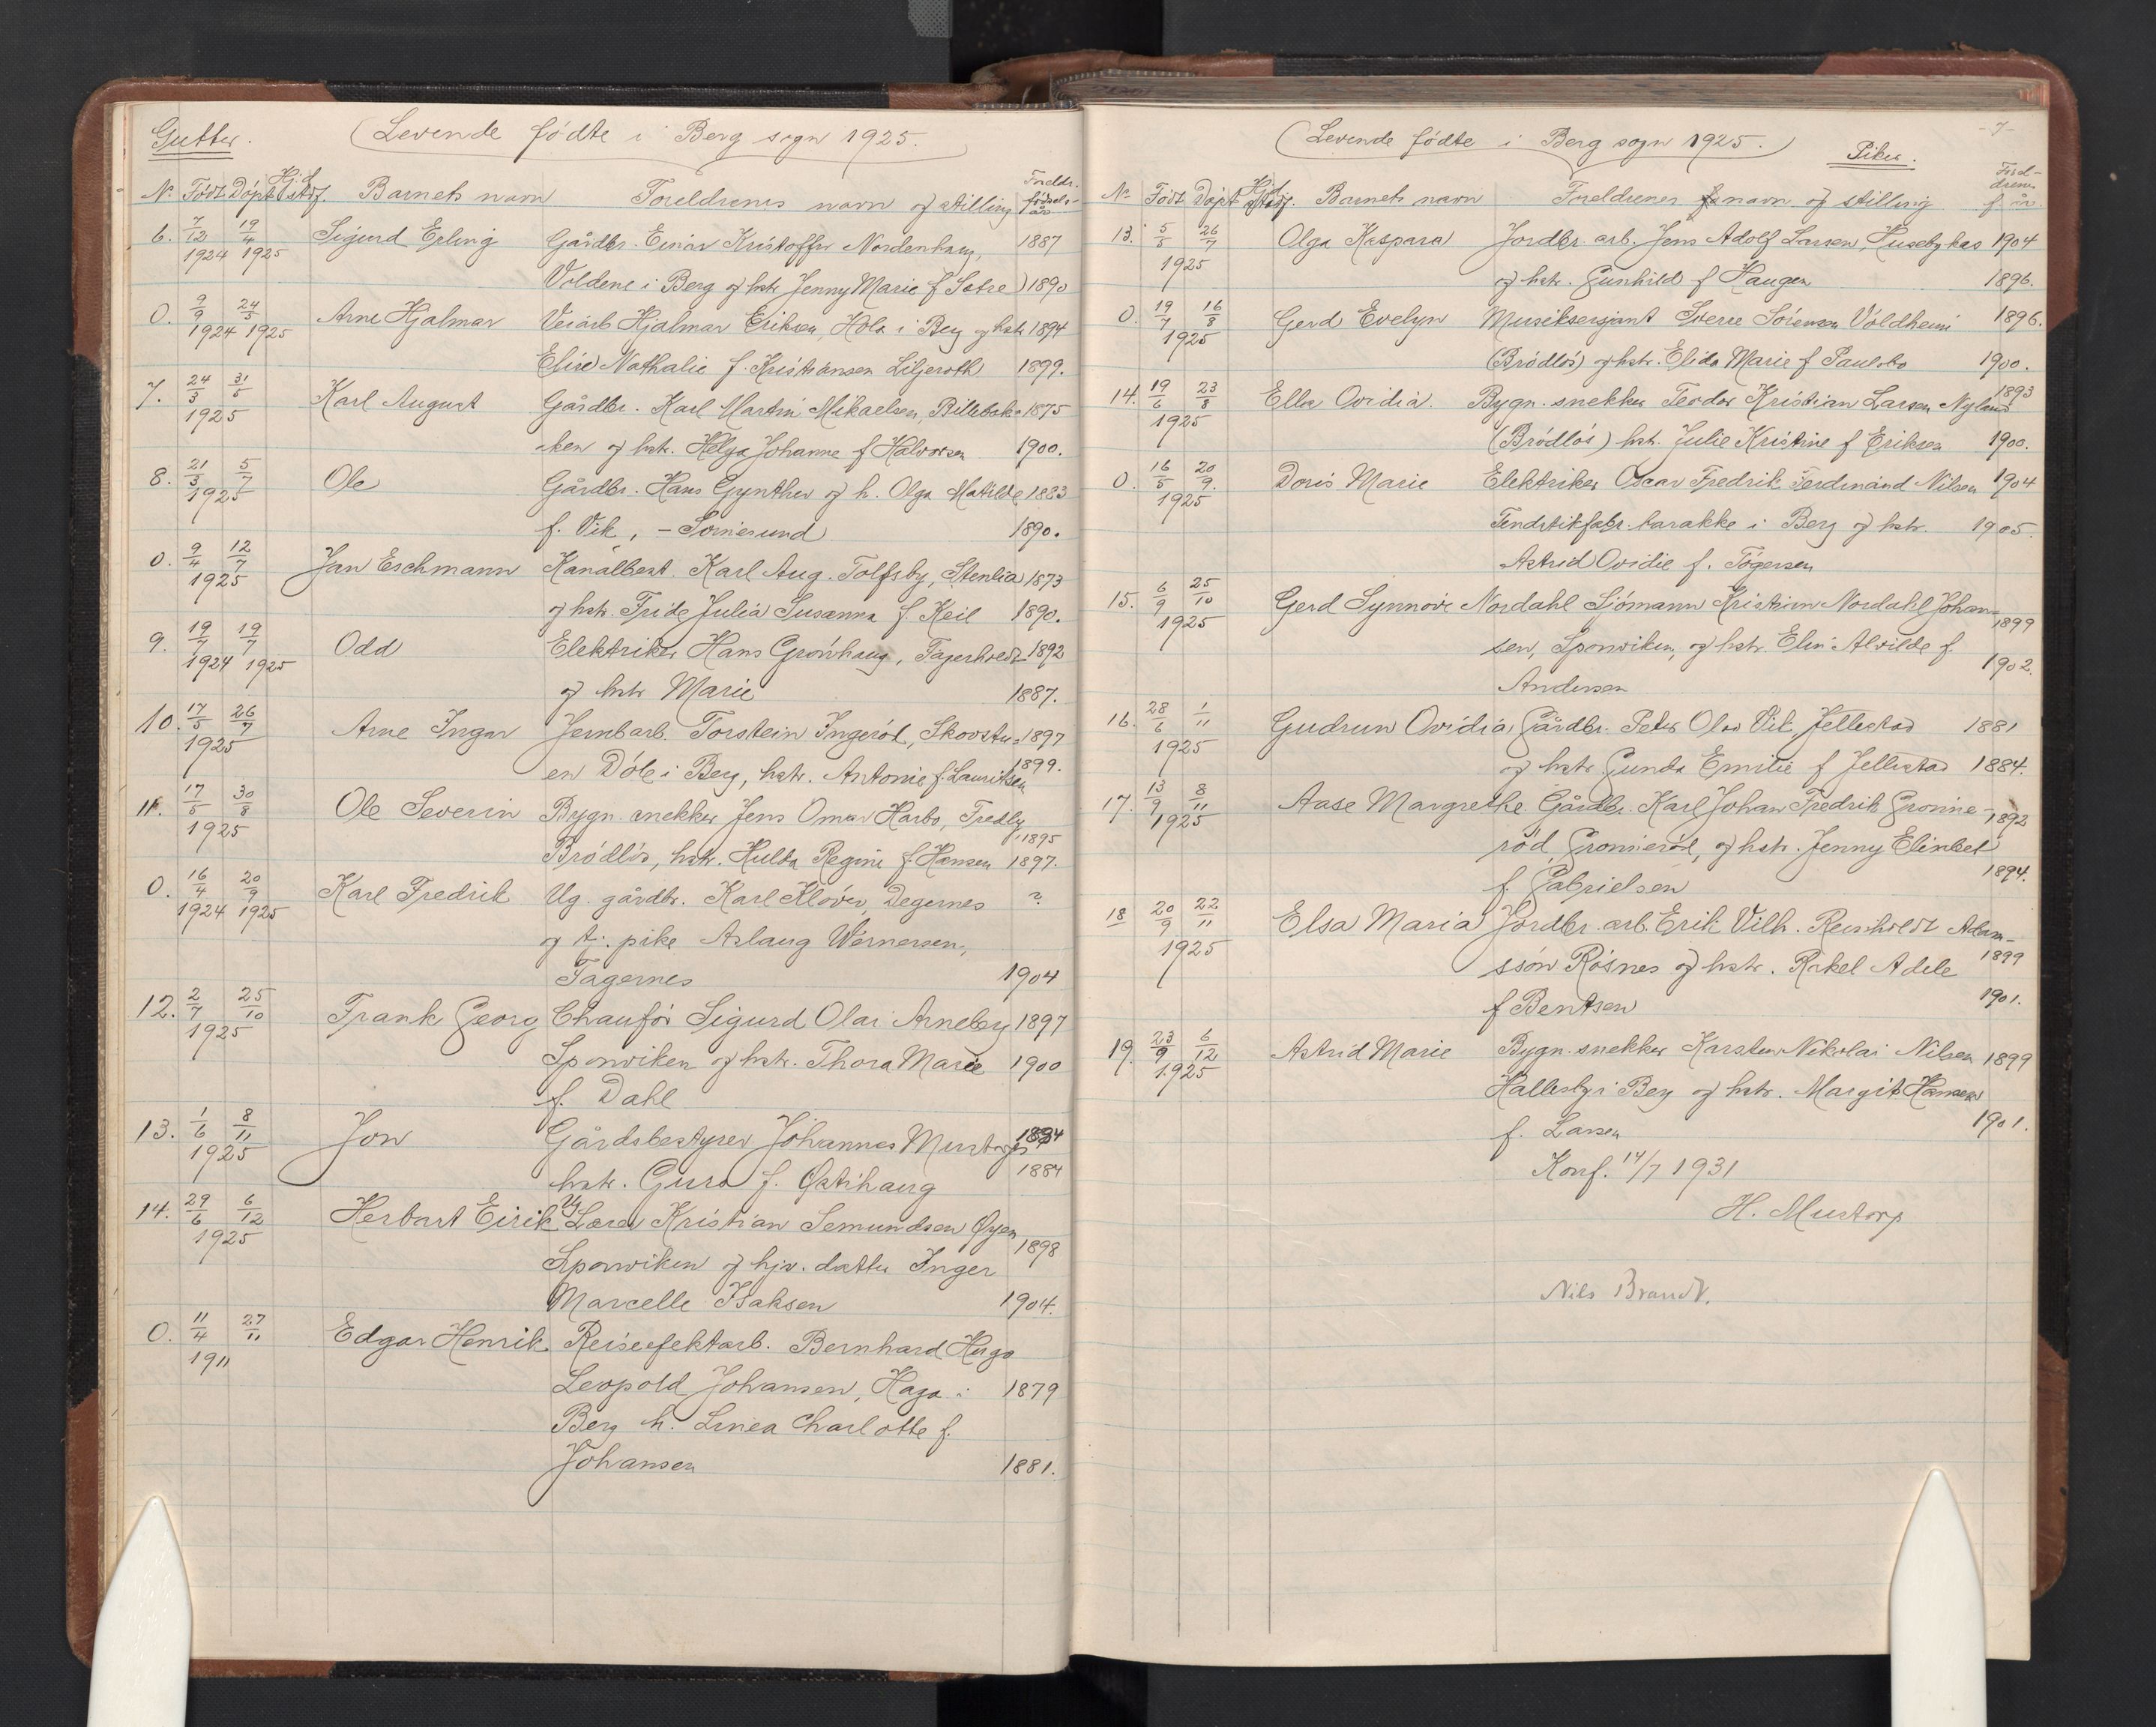 Gutter. (Levende födte i Berg sogn 1925.)
No. Födt Döpt Hj.d. Barnets navn Foreldrenes navn og stilling Foreldr. födsels-år
6. 7/12 1924 19/4 1925 Sigurd Erling Gårdbr. Einar Kristoffer Nordenhaug, 1887
Voldene i Berg og hstr. Jenny Marie f. Sætre 1890
0. 9/9 1924 24/5 1925 Arne Hjalmar Hjalmar Eriksen, Hola i Berg og hstr. 1894
Elise Nathalie f. Kristiansen Liljeroth 1899.
7. 24/3 31/5 1925 Karl August Gårdbr. Karl Martin Mikaelsen, Billebak- 1875
ken og hstr. Helga Johanne f. Halvorsen 1900.
8. 21/3 5/7 1925 Ole Gårdbr. Hans Gynther og h. Olga Matilde 1883
f. Vik, - 1890.
0. 9/4 12/7 1925 Jan Eschmann Kanalbest. Karl Aug. Tolfsby, Stenlia 1873
og hstr. Julia Susanna f. Keil 1890.
9. 19/7 1924 19/7 1925 Odd Elektriker Hans Grönhaug, Fagerholdt 1892
og hstr. Marie 1887.
10. 17/5 26/7 1925 Arne Ingar Jernbarb. Torstein Ingeröd, Skovstu- 1897
en Döle i Berg, hstr. Antonie f. Lauritsen 1899.
11. 17/5 30/8 1925 Ole Severin Bygn. snekker Jens Omar Harbo, Fredly 1895
Brödlös, hstr. Hulda Regine f. Hansen 1897.
0. 16/4 1924 20/9 1925 Karl Fredrik Ug. gårdbr. Karl Klöver, Degernes ?
og tj. pike Aslaug Wernersen,
Fagernes 1904
12. 2/7 25/10 1925 Frank Georg Chauför Sigurd Olai Arneberg 1897
Sponviken og hstr. Thora Marie 1900
f. Dahl
13. 1/6 8/11 1925 Jon Gårdsbestyrer Johannes Mustorp 1884
hstr. Guro f. Østihaug 1884
14. 29/6 6/12 1925 Herbart Eirik Ug. Lærer Kristian Semundsen Øyen 1898
Sponviken og hjv. datter Inger
Marcelle Isaksen 1904.
0. 11/4 27/11 1911 Edgar Henrik Reiseefektarb. Bernhard Hugo
Leopold Johansen, Haga i 1879
Berg h. Linea Charlotte f.
Johansen 1881.
-7-
(Levende födte i Berg sogn 1925.) Piker.
No. Födt Döpt Hjd. Barnets navn Foreldrenes navn og stilling Foreldrenes f. år.
13. 5/5 26/7 1925 Olga Kaspara Jordbr. arb. Jens Adolf Larsen, Husebykas 1904
og hstr. Gunhild f. Haugen 1896.
0. 19/7 16/8 1925 Gerd Evelyn Musiksersjant Sverre Sörensen Voldheim 1896.
(Brödlös) og hstr. Elida Marie f. Paulsbo 1900.
14. 19/6 23/8 1925 Ella Ovidia. Bygn. snekker Teodor Kristian Larsen Nyland 1893
(Brödlös) hst. Julie Kristine f. Eriksen 1900.
0. 16/5 20/9. 1925 Doris Marie Elektriker Oscar Fredrik Ferdinand Nilsen 1904
Fendstikfabr. barakke i Berg og hstr. 1905.
Astrid Ovidie f. Tögersen
15. 6/9 25/10 1925 Gerd Synnöve Nordahl Sjömann Kristian Nordahl Johan- 1899
sen, Sponviken, og hstr. Elin Alvilde f. 1902.
Andersen
16. 28/6 1/11 1925 Gudrun Ovidia Gårdbr. Peter Olav Vik Jellestad 1881
og hstr. Gunda Emilie f. Jellestad 1884.
17. 13/9 8/11 1925 Aase Margrethe Gårdbr. Karl Johan Fredrik Gronne- 1892
röd, Gronneröd, og hstr. Jenny Elinbet
f. Gabrielsen 1894.
18 20/9 22/11 1925 Elsa Maria Jordbr. arb. Erik Vilh. Reinholdt Adam-
ssön Rösnes og hstr. Rakel Adele 1899
f. Bentsen 1901.
19. 23/9 6/12 1925 Astrid Marie Bygn. snekker Karsten Nikolai Nilsen 1899
Hallesby i Berg og hstr. Margit Hansen
f. Larsen 1901.
Konf. 14/7 1931
H. Mustorp
Nils Brandt.